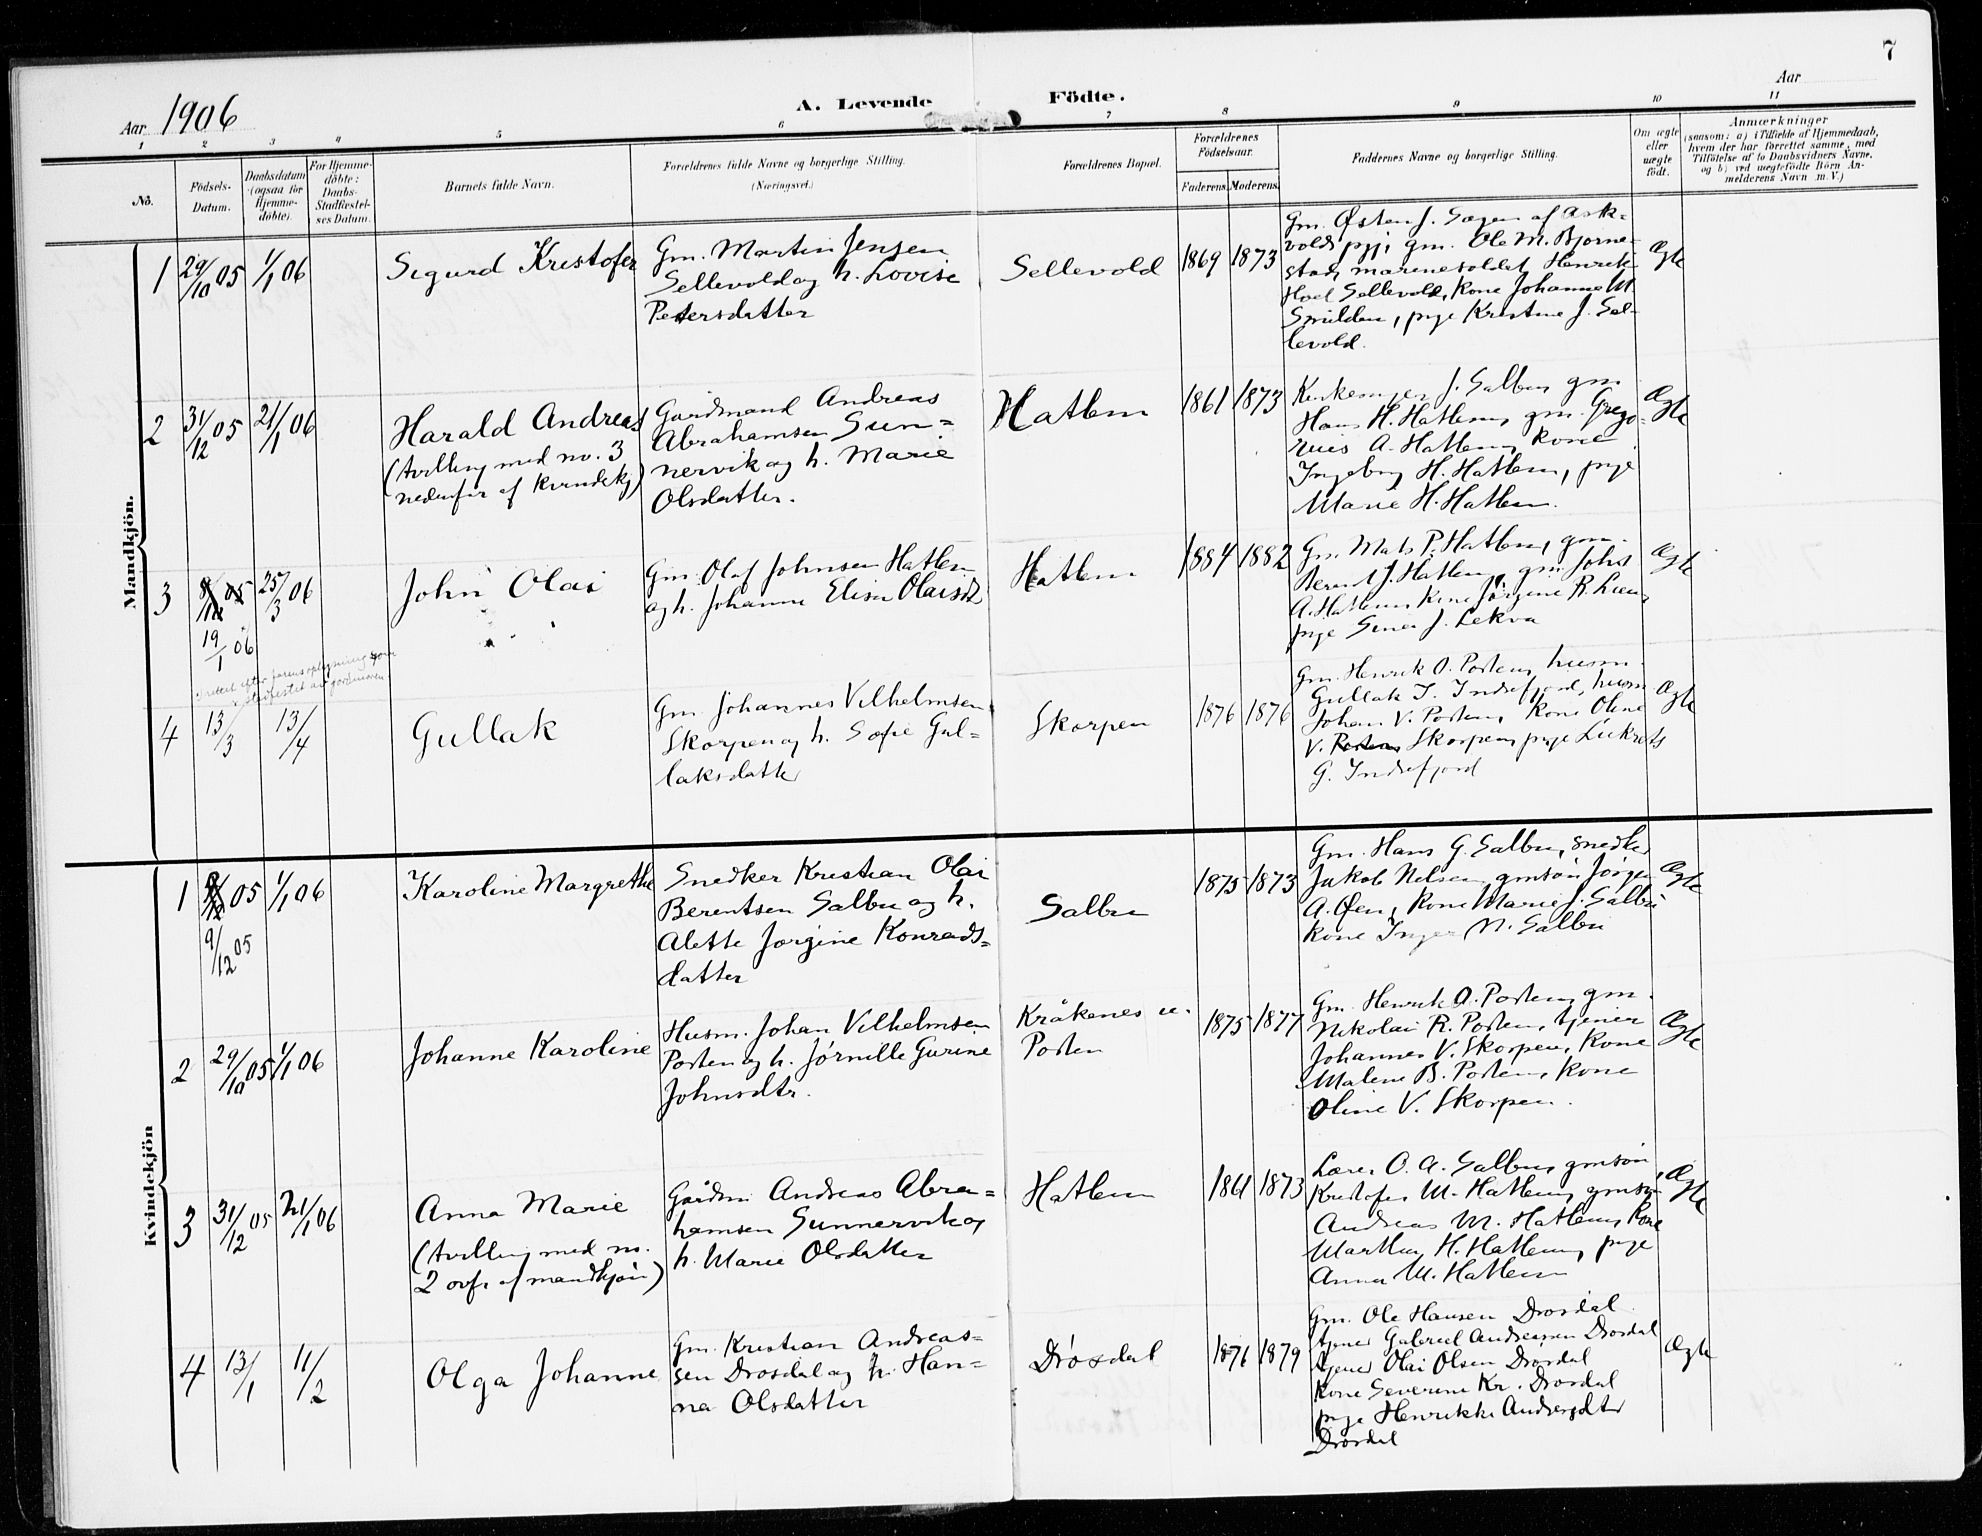 7
Aar 1906
A. Levende Födte.
Aar
1 2 3 4 5 6 7 8 9 10 11
No.
Födsels-
Datum.
Daabsdatum
(ogsaa for
Hjemme-
döbte).
For Hjemme-
döbte:
Daabs-
Stadfæstel-
ses Datum.
Barnets fulde Navn.
Forældrenes fulde Navne og borgerlige Stilling.
(Næringsvei.)
Forældrenes Bopæl.
Forældrenes
Födselsaar.
Faderens. Moderens.
Faddernes Navne og borgerlige Stilling.
Om ægte
eller
uægte
født.
Anmærkninger
(saasom: a) i Tilfælde af Hjemmedaab,
hvem der har forrettet samme, med
Tilföielse af to Daabsvidners Navne,
og b) ved uægtefödte Börn An-
melderens Navn m. V.)
Mandkjön.
1
29/10 05
1/1 06
Sigurd Kristofer
Gm. Martin Jensen
Sellevold og h. Lovise
Petersdatter
Sellevold
1869 1873
Gm. Østen J. Sagen af Ask-
volds pgj; gm. Ole M. Bjørne-
stad, marinesoldat Henrik
Hoel Sellevold, kone Johanne M
Smilden, pige Kristine J. Sel-
levold.
Ægte
2
31/12 05
21/1 06
Harald Andreas
(tvilling med no. 3
nedenfor af kvindekj)
Gaardmand Andreas
Abrahamsen Sun-
nervik og h. Marie
Olsdatter.
Hatlem
1861 1873
J. Salbu, gm
Hans H. Hatlem, gm. Grego-
rius A. Hatlem, kone
Ingeborg H. Hatlem, pige
Marie H. Hatlem.
Ægte
3
05
19/1 06
25/3 06
John Olai
Gm. Olaf Johnsen Hatlem
og h. Johanne Elisa Olaisd
Hatlem
1884 1882
Gm. Mats P. Hatlem, gm.
Bernt J. Hatlem, gm. Johs
A. Hatlem kone Jørgine R. Lien,
pige Sina J. Lekva
Ægte
rettet efter farens oplysning som
stadfestet av gormoren.
4
13/3
13/4
Gullak
Gm. Johannes Vilhelmsen
Skorpen og h. Sofie Gul-
laksdatter
Skorpen
1876 1876
Gm. Henrik O. Porten, husm.
Gullak T. Indrefjord, husm
Johan V. Porten, kone Oline
V. Porten Skorpen, pige Lukrets
G. Indrefjord
Ægte
Kvindekjön
1
05
9/12 05
1/1 06
Karoline Margrethe
Snedker Kristian Olai
Berentsen Salbu og h.
Alette Jørgine Konrads-
datter
Salbu
1875 1873
Gm. Hans G. Salbu, snedker
Jakob Nilsen, gmsøn Jørgen
A. Øen, kone Marie J. Salbu
kone Inger N. Salbu
Ægte
2
29/10 05
1/1 06
Johanne Karoline
Husm. Johan Vilhelmsen
Porten og h. Jørnille Gurine
Johnsdtr.
Kråkenes u.
Porten
1875 1877
Gm. Henrik O. Porten, gm.
Nikolai R. Porten, tjener
Johannes V. Skorpen, kone
Malene B. Porten, kone
Oline V. Skorpen.
Ægte
3
31/12 05
21/1 06
Anna Marie
(tvilling med no.
2 ovfr. af mandkjøn)
Gårdm. Andreas Abra-
hamsen Sunnervik og
h. Marie Olsdatter
Hatlem
1861 1873
Lærer O. A. Salbu, gmsøn
Kristofer M. Hatlem, gmsøn
Andreas M. Hatlem, kone
Martha H. Hatlem, pige
Anna M. Hatlem
Ægte
4
13/1
11/2
Olga Johanne
Gm. Kristian Andreas-
sen Drøsdal og h. Han-
na Olsdatter
Drøsdal
1876 1879
Gm. Ole Hansen Drøsdal
tjener Gabriel Andreassen Drøsdal
tjener Olai Olsen Drøsdal
kone Severine Kr. Drøsdal
pige Henrikke Andreasdtr
Drøsdal
Ægte